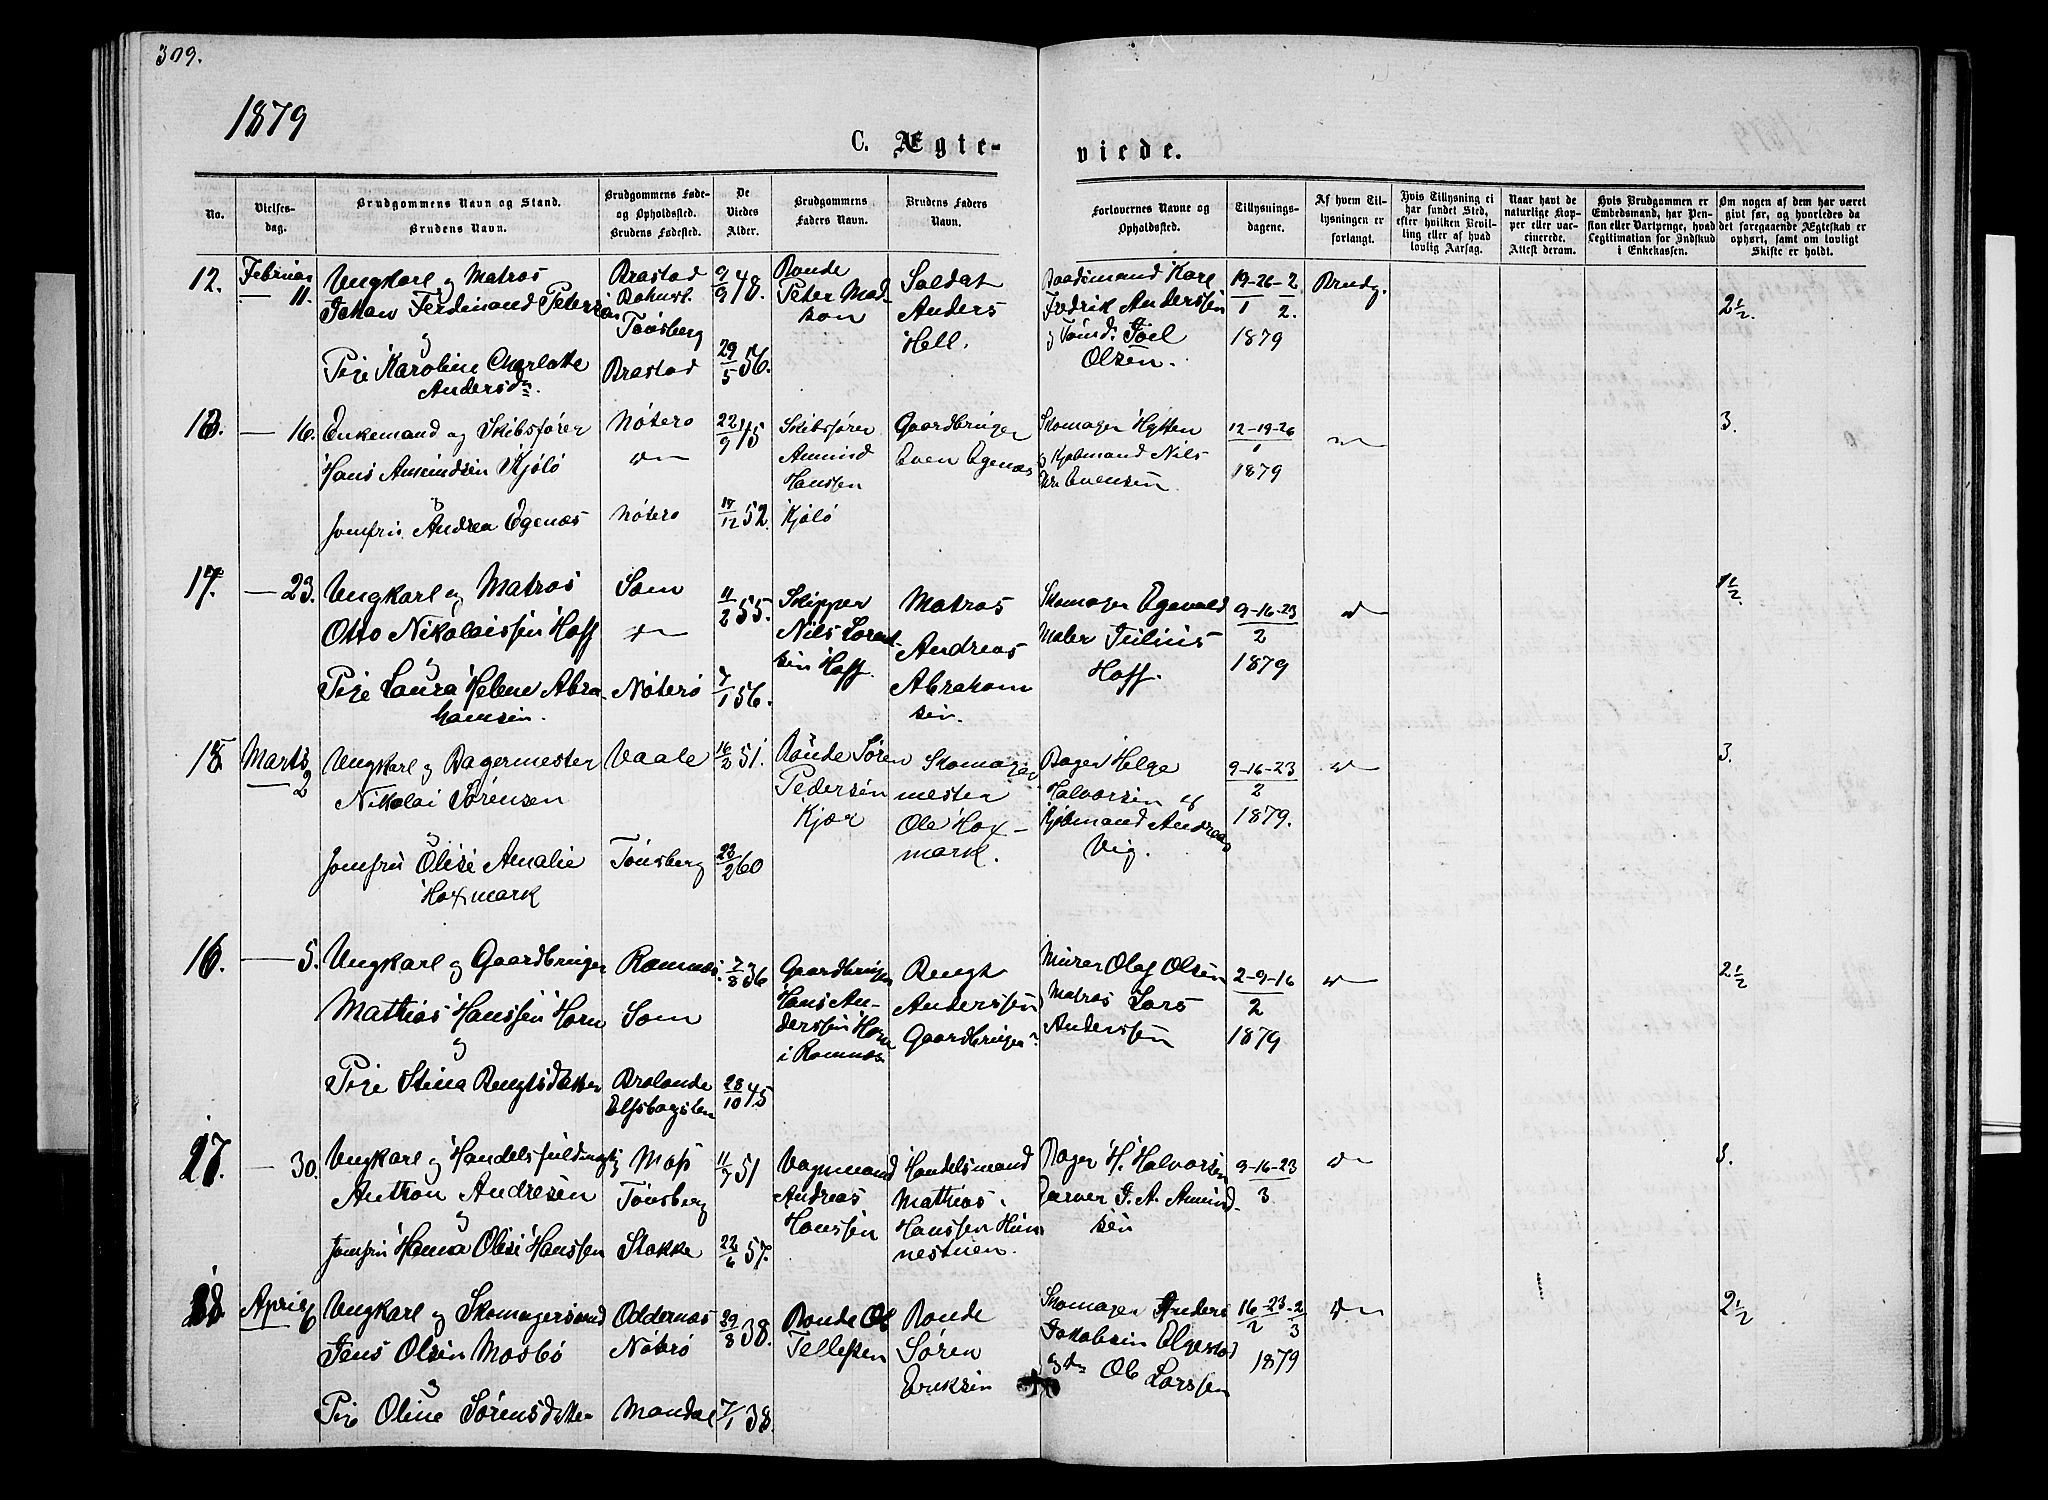 309.
1879
C. Ægte-
viede.
No.
Vielses-
dag.
Brudgommens Navn og Stand.
Brudens Navn.
Brudgommens Føde-
og Opholdssted.
Brudens Fødested.
De
Viedes
Alder.
Brudgommens
Faders Navn.
Brudens Faders
Navn.
Forlovernes Navne og
Opholdssted.
Tillysnings-
dagene.
Af hvem Til-
lysningen er
forlangt.
Hvis Tillysning ei
har fundet Sted,
efter hvilken Bevil-
ling eller af hvad
lovlig Aarsag.
Naar havt de
naturlige Kop-
per eller vac-
cinerede.
Attest derom.
Hvis Brudgommen er
Embedsmand, har Pen-
sion eller Vartpenge, hvad
Legitimation for Indskud
i Enkekassen.
Om nogen af dem har været
givt før, og hvorledes da
det foregaaende Ægteskab er
ophørt, samt om lovligt
Skifte er holdt.
12.
Februar
— 11.
Ungkarl og Matros
Johan Ferdinand Peterson
og
Pige Karoline Charlotte
Andersdr.
Brastad
Bohusl.
Tönsberg
Brastad
9/9 48.
29/5 56.
Bonde
Peter Mad-
son
Soldat
Anders
Hell.
Baadsmand Karl
Fredrik Anderssen
og Tömd. Joel
Olsen.
19-26-2
1 2.
1879
Brudg.
2 1/2.
13.
— 16.
Enkemand og Skibsfører
Hans Amundsen Kjölö
og
Jomfru Andrea Egenæs
Nøterø
Nøterø
22/9 45
17/12 52.
Skibsfører
Amund
Hanssen
Kjölö
Gaardbruger
Even Egenæs
Skomager Hytten
og Kjøbmand Nils
Evensen
12-19-26
1
1879
3.
14.
— 23.
Ungkarl og Matros
Otto Nikolaissen Hoff
og
Pige Laura Helene Abra-
hamsen.
Sem
Nøterö
11/2 55.
7/1 56.
Skipper
Nils Lorent-
sen Hoff.
Matros
Andreas
Abraham
sen.
Skomager Egevald
Maler Julius
Hoff.
9-16-23
2
1879
1 1/2.
15.
Marts
— 2
Ungkarl og Bagermester
Nikolai Sørensen
og
Jomfru Olise Amalie
Hoxmark
Vaale
Tönsberg
16/2 51.
23/2 60
Bonde Søren
Pedersen
Kjær
Skomager
mester
Ole Hox-
mark.
Bager Helge
Halvorsen og
Kjøbmand Andreas
Vig.
9-16-23
2
1879.
3.
16.
— 5.
Ungkarl og Gaardbruger
Mathias Hanssen Horn
og
Pige Stina Bengtsdatter
Ramnæs.
Sem
Bralanda
Elfsborgslen
7/8 36
28/10 45
Gaardbruger
Hans An-
derssen Horn
i Ramnæs
Bengt
Anderssen
Gaardbruger
Murer Olaf Olsen
Matros Lars
Anderssen
2-9-16
2
1879
2 1/2
17.
— 30.
Ungkarl og Handelsfuldmægtig
Anthon Andresen
og
Jomfru Hanna Olise Hanssen
Moss
Tönsberg
Stokke
11/7 51
22/6 57.
Vognmand
Andreas
Hanssen
Handelsmand
Mathias
Hanssen Hun
nestuen.
Bager H. Halvorsen
Garver J. A. Amund-
sen
9-16-23
3
3.
18
April 6
Ungkarl og Skomagersvend
Jens Olsen Mosbö
og
Pige Oline Sørensdatter
Oddernæs
Nöterö
Mandal
29/8 38.
7/1 38.
Bonde Ole
Tellefsen
Bonde
Søren
Eriksen
Skomager Anders
Jakobsen Elgestad
og do Ole Larssen
16-23-2
2 3
1879
2 1/2